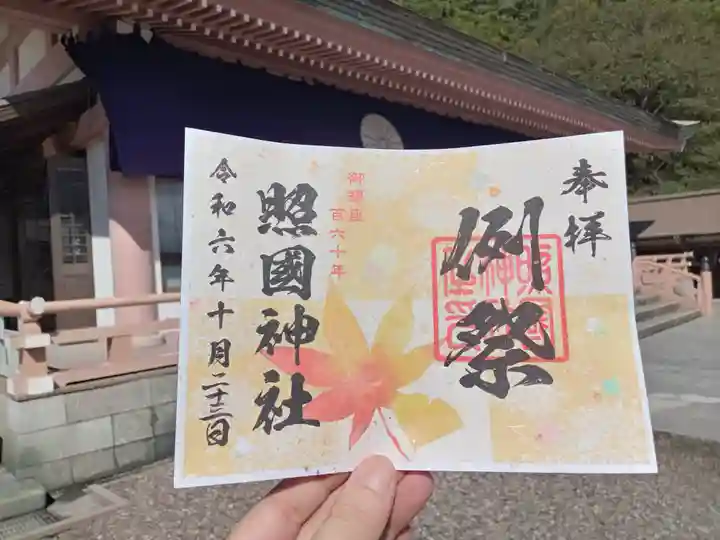 奉拝
例祭
御鎮座
百六十年
照國神社
令和六年十月二十三日